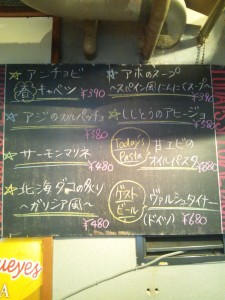 ☆アンチョビ
春キャベツ ¥390
☆アジのカルパッチョ
¥580
☆サーモンマリネ
¥480
☆北海ダコの炙り
~ガリシア風~
¥480
☆アホのスープ
~スペイン風にんにくスープ~
¥390
☆ししとうのアヒージョ
¥380
Today's Pasta 甘エビの
オイルパスタ
ゲストビール ヴァルシュタイナー
(ドイツ) ¥680
ueyes
A